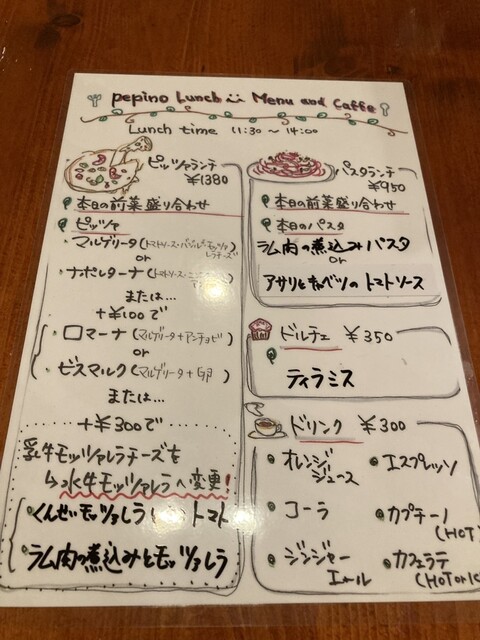 pepino Lunch Menu and Caffe
Lunch time 11:30 ~ 14:00
ピッツァランチ
¥1380
本日の前菜盛り合わせ
ピッツァ
・マルゲリータ(トマトソース・バジル・モッツァレラチーズ)
or
・ナポレターナ(トマトソース・
または…
+¥100で
・ロマーナ(マルゲリータ+アンチョビ)
or
・ビスマルク(マルゲリータ+卵)
または…
+¥300で
乳牛モッツァレラチーズを
↳水牛モッツァレラへ変更!
・くんせいモッツァレラ トマト
・ラム肉の煮込みとモッツァレラ
パスタランチ
¥950
本日の前菜盛り合わせ
本日のパスタ
ラム肉の煮込みパスタ
or
アサリとキャベツのトマトソース
ドルチェ ¥350
ティラミス
ドリンク ¥300
オレンジ
ジュース
コーラ
ジンジャー
エール
エスプレッソ
カプチーノ
(HOT)
カフェラテ
(HOT or